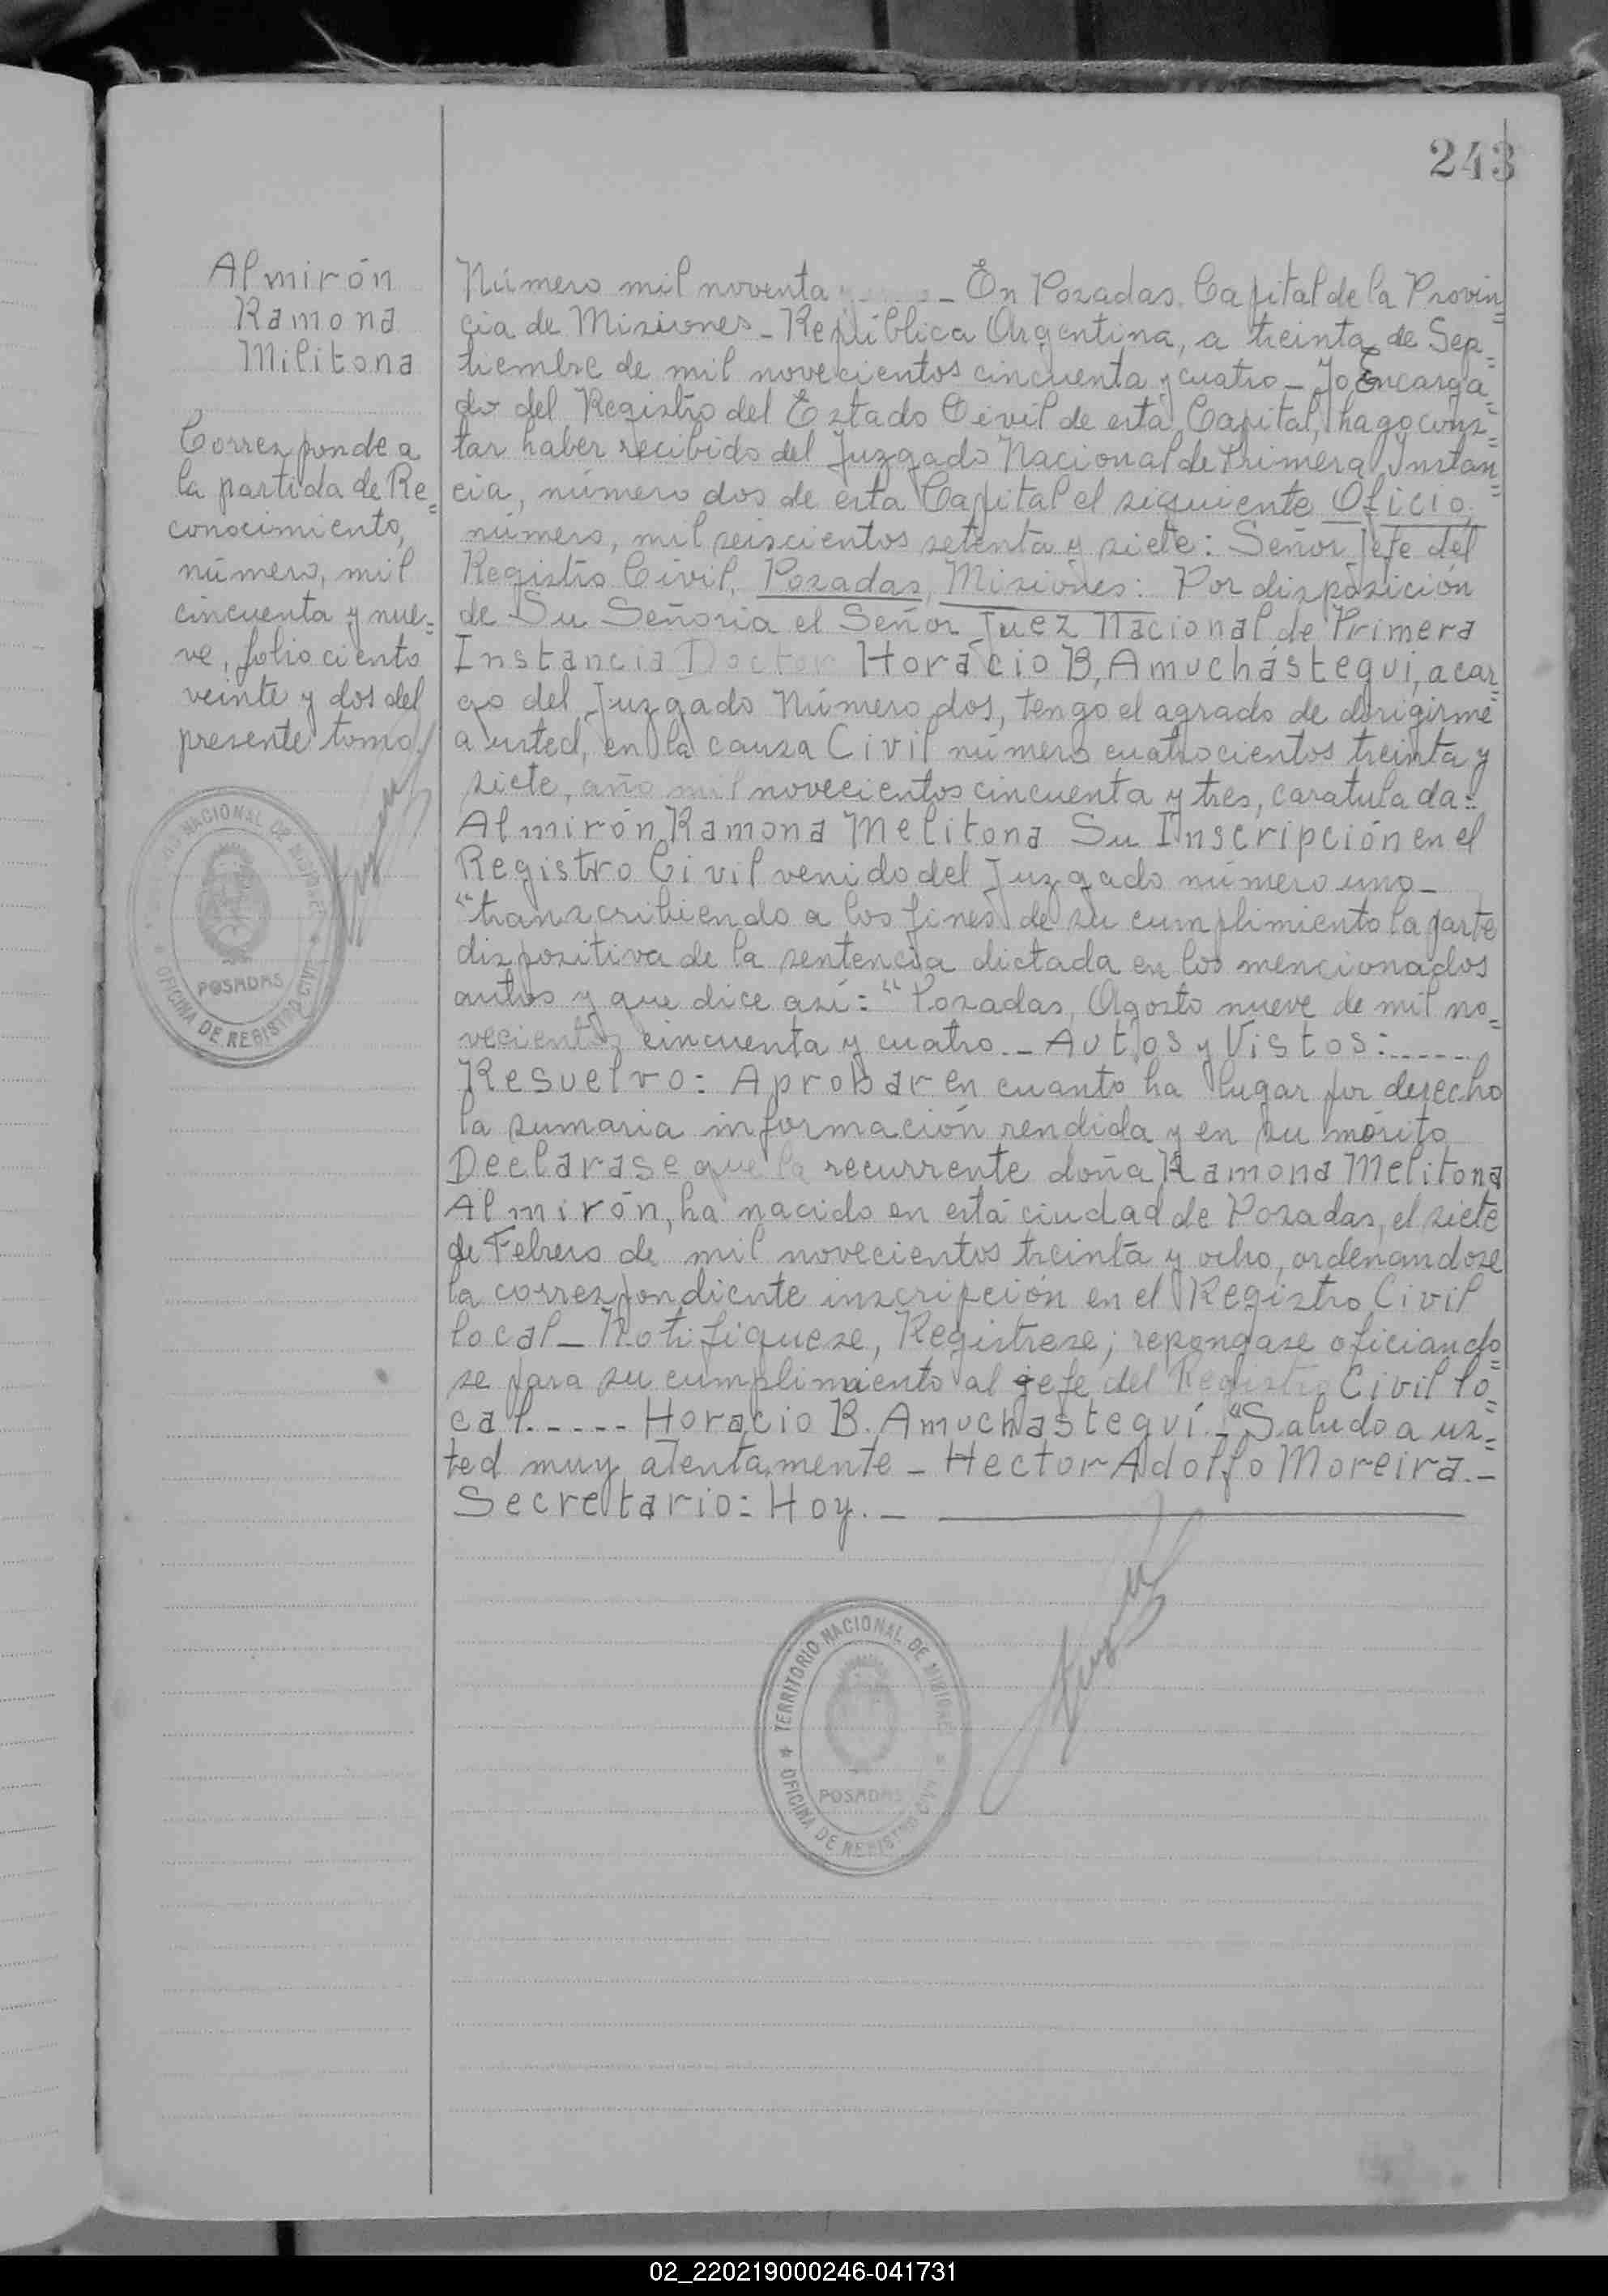 243
Almirón
Ramona
Militona
Corresponde a
la partida de Re=
conocimiento,
número, mil
cincuenta y nue=
ve, folio ciento
veinte y dos del
presente tomo
NACIONAL DE MISIONES
POSADAS
OFICINA DE REGISTRO CIVIL
Número mil noventa y _ En Posadas, Capital de la Provin=
cia de Misiones _ República Argentina, a treinta de Sep=
tiembre de mil novecientos cincuenta y cuatro _ Yo Encarga=
do del Registro del Estado Civil de esta Capital, hago cons=
tar haber recibido del Juzgado Nacional de Primera Instan=
cia, número dos de esta Capital el siguiente Oficio,
número, mil seiscientos setenta y siete: Señor Jefe del
Registro Civil, Posadas, Misiones: Por disposición
de Su Señoria el Señor Juez Nacional de Primera
Instancia Doctor Horacio B, Amuchástegui, a car=
go del Juzgado Número dos, tengo el agrado de dirigirme
a usted, en la causa Civil número cuatrocientos treinta y
siete, año mil novecientos cincuenta y tres, caratulada:
Almirón Ramona Melitona Su Inscripción en el
Registro Civil venido del Juzgado número uno _
“transcribiendo a los fines de su cumplimiento la parte
dispositiva de la sentencia dictada en los mencionados
autos y que dice así: “Posadas, Agosto nueve de mil no=
vecientos cincuenta y cuatro._ Autos y Vistos:.....
Resuelvo: Aprobar en cuanto ha lugar por derecho
la sumaria información rendida y en su mérito
Declarase que la recurrente doña Ramona Melitona
Almirón, ha nacido en esta ciudad de Posadas, el siete
de Febrero de mil novecientos treinta y ocho, ordenandose
la correspondiente inscripción en el Registro Civil
local _ Notifiquese, Registrese; repongase oficiando=
se para su cumplimiento al jefe del Registro Civil lo=
cal..... Horacio B. Amuchasteguí._ “Saludo a us=
ted muy atentamente _ Hector Adolfo Moreira._
Secretario: Hoy._
TERRITORIO NACIONAL DE MISIONES
POSADAS
OFICINA DE REGISTRO CIVIL
02_220219000246-041731